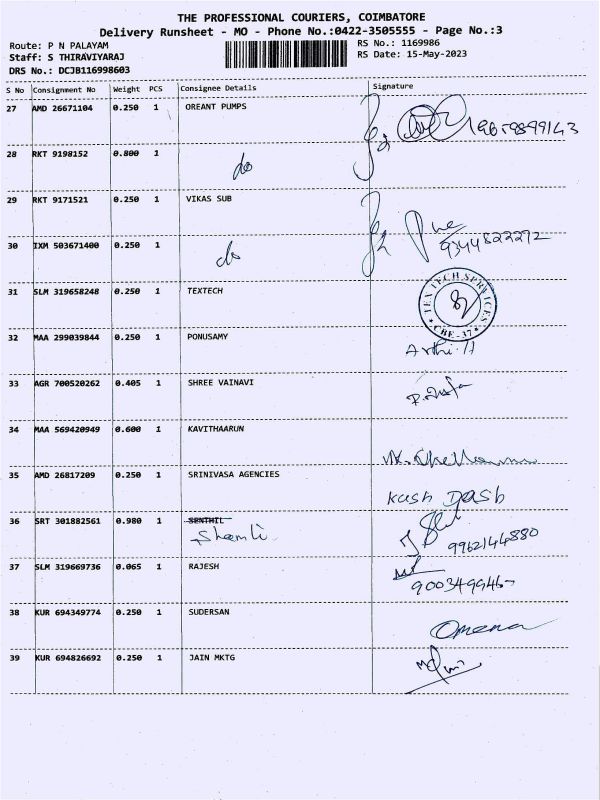 THE PROFESSIONAL COURIERS, COIMBATORE
Delivery Runsheet - MO - Phone No.:0422-3505555 - Page No.:3
Route: P N PALAYAM
Staff: S THIRAVIYARAJ
DRS No.: DCJB116998603
RS No.: 1169986
RS Date: 15-May-2023
S No Consignment No Weight PCS Consignee Details Signature
27 AMD 26671104 0.250 1 OREANT PUMPS
28 RKT 9198152 0.800 1 do
29 RKT 9171521 0.250 1 VIKAS SUB
30 IXM 503671400 0.250 1 do
9344822272
31 SLM 319658248 0.250 1 TEXTECH
TEX TECH SERVICES
CBE-37
32 MAA 299039844 0.250 1 PONUSAMY
Arthi. H
33 AGR 700520262 0.405 1 SHREE VAINAVI
34 MAA 569420949 0.600 1 KAVITHAARUN
35 AMD 26817209 0.250 1 SRINIVASA AGENCIES
Kash Dash
36 SRT 301882561 0.980 1 SENTHIL
Shamli
9962144880
37 SLM 319669736 0.065 1 RAJESH
38 KUR 694349774 0.250 1 SUDERSAN
Omana
39 KUR 694826692 0.250 1 JAIN MKTG